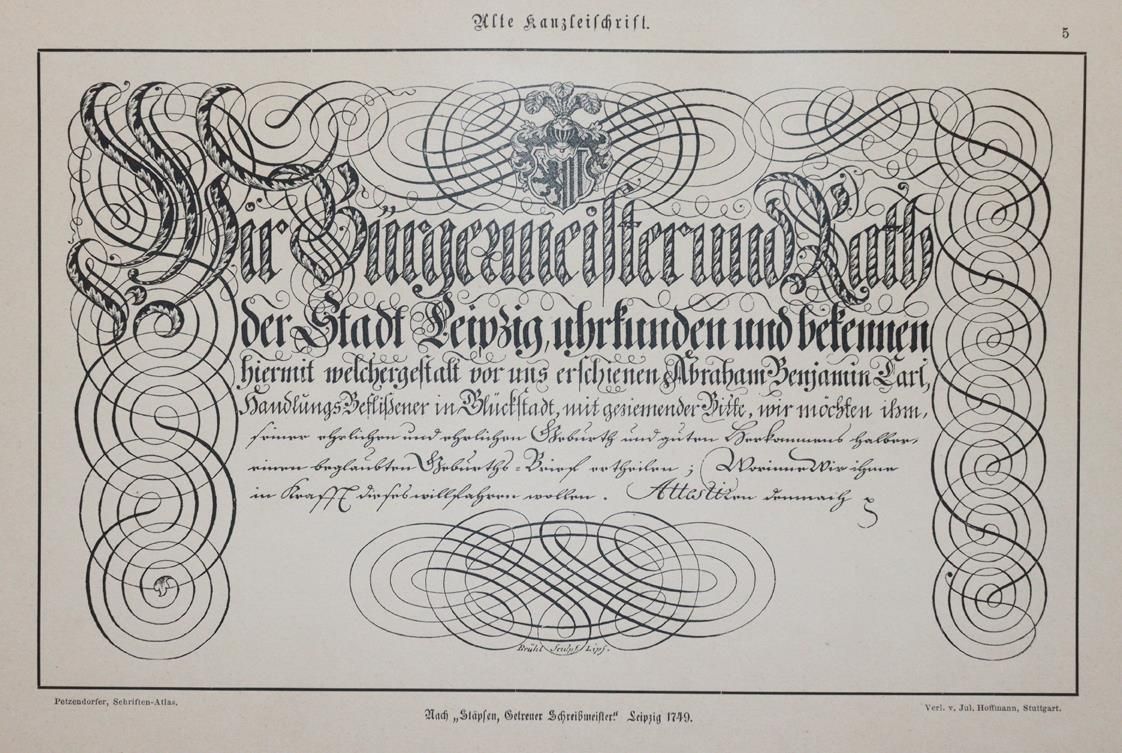 Alte Kanzleischrift.
5
Wir Bürgemeister und Rath
der Stadt Leipzig, uhrkunden und bekennen
hiermit welchergestalt vor uns erschienen Abraham Benjamin Carl,
Handlungs Beflißener in Glückstadt, mit geziemender Bitte, wir möchten ihm,
seiner ehrlichen und ehelichen Geburth und guten Herkommens halber,
einen beglaubten Geburths-Brief ertheilen; Worinne Wir ihme
in Krafft dieses willfahren wollen. Attestiren demnach
Brühl Sculps. Lips.
Petzendorfer, Schriften-Atlas.
Nach „Stäpsen, Getreuer Schreibmeister.“ Leipzig 1749.
Verl. v. Jul. Hoffmann, Stuttgart.